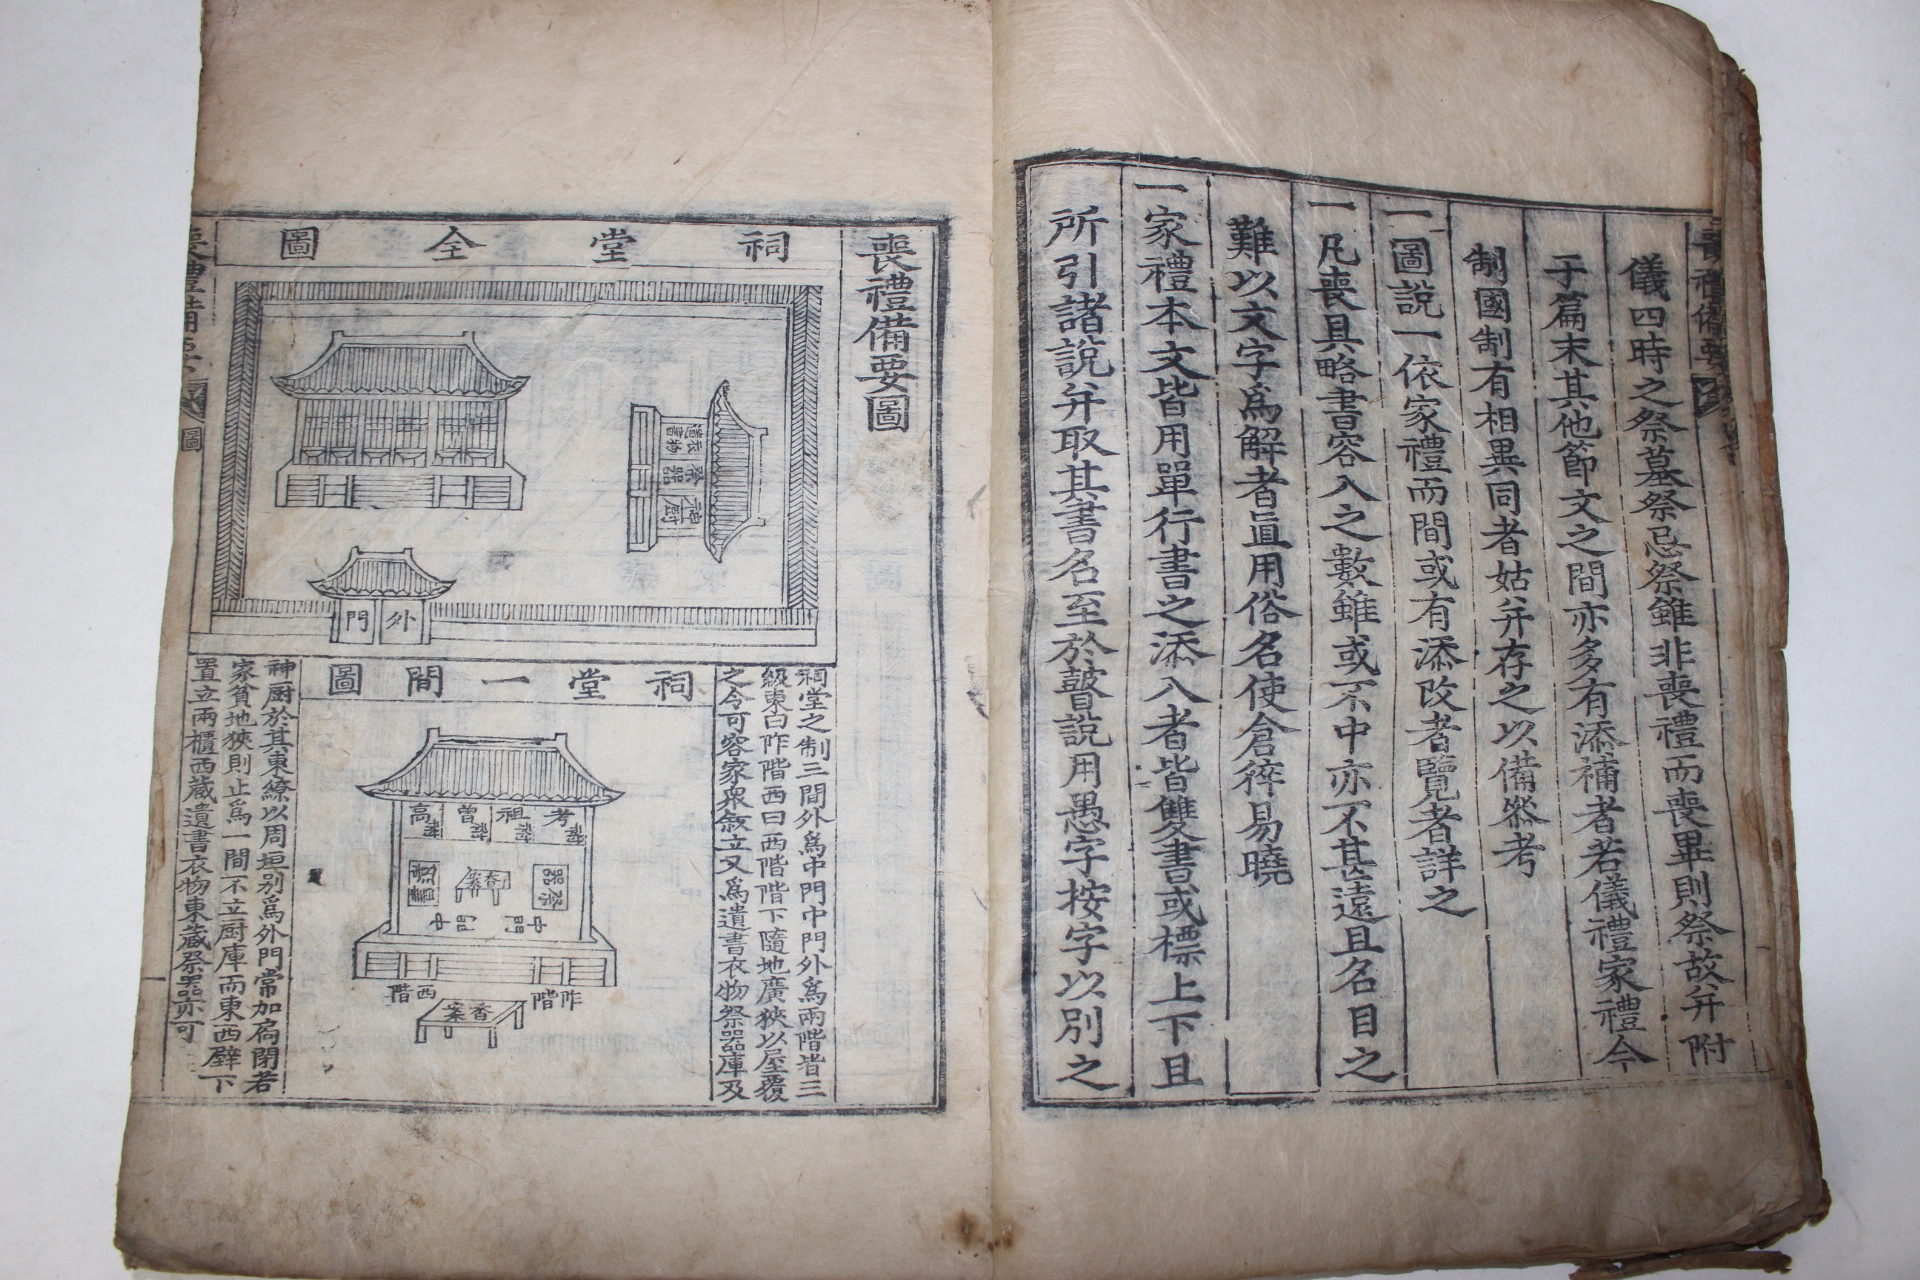 儀四時之祭墓祭忌祭雖非喪禮而喪畢則祭故幷附
于篇末其他節文之間亦多有添補者若儀禮家禮今
制國制有相異同者姑幷存之以備叅考
一圖說一依家禮而間或有添改者覽者詳之
一凡喪具略書容入之數雖或不中亦不甚遠且名目之
難以文字爲解者直用俗名使倉猝易曉
一家禮本文皆用單行書之添入者皆雙書或標上下且
所引諸說幷取其書名至於瞽說用愚字按字以別之
喪禮備要圖
祠堂全圖
遺衣
書物
祭器
神厨
外門
祠堂之制三間外爲中門中門外爲兩階皆三
級東曰阼階西曰西階階下隨地廣狹以屋覆
之令可容家衆敘立又爲遺書衣物祭器庫及
祠堂一間圖
考
祖
曾
高
祭器
香案
中門
中門
阼階
西階
香案
神厨於其東繚以周垣別爲外門常加扃閉若
家貧地狹則止爲一間不立厨庫而東西壁下
置立兩櫃西藏遺書衣物東藏祭器亦可